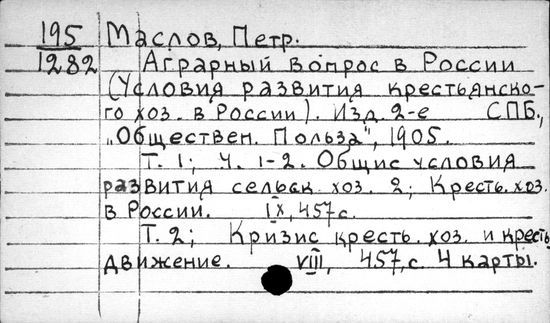 195 Маслов, Петр.
1282 Аграрный вопрос в России
(Условия развития крестьянско-
го хоз. в России). Изд. 2-е СПБ.,
„Обществен. Польза", 1905.
Т. 1; Ч. 1-2. Общис условия
развития сельск. хоз. 2; Кресть. хоз.
в России. IX, 457 с.
Т. 2; Кризис кресть. хоз. и кресть.
движение. VIII, 457, с. 4 карты.